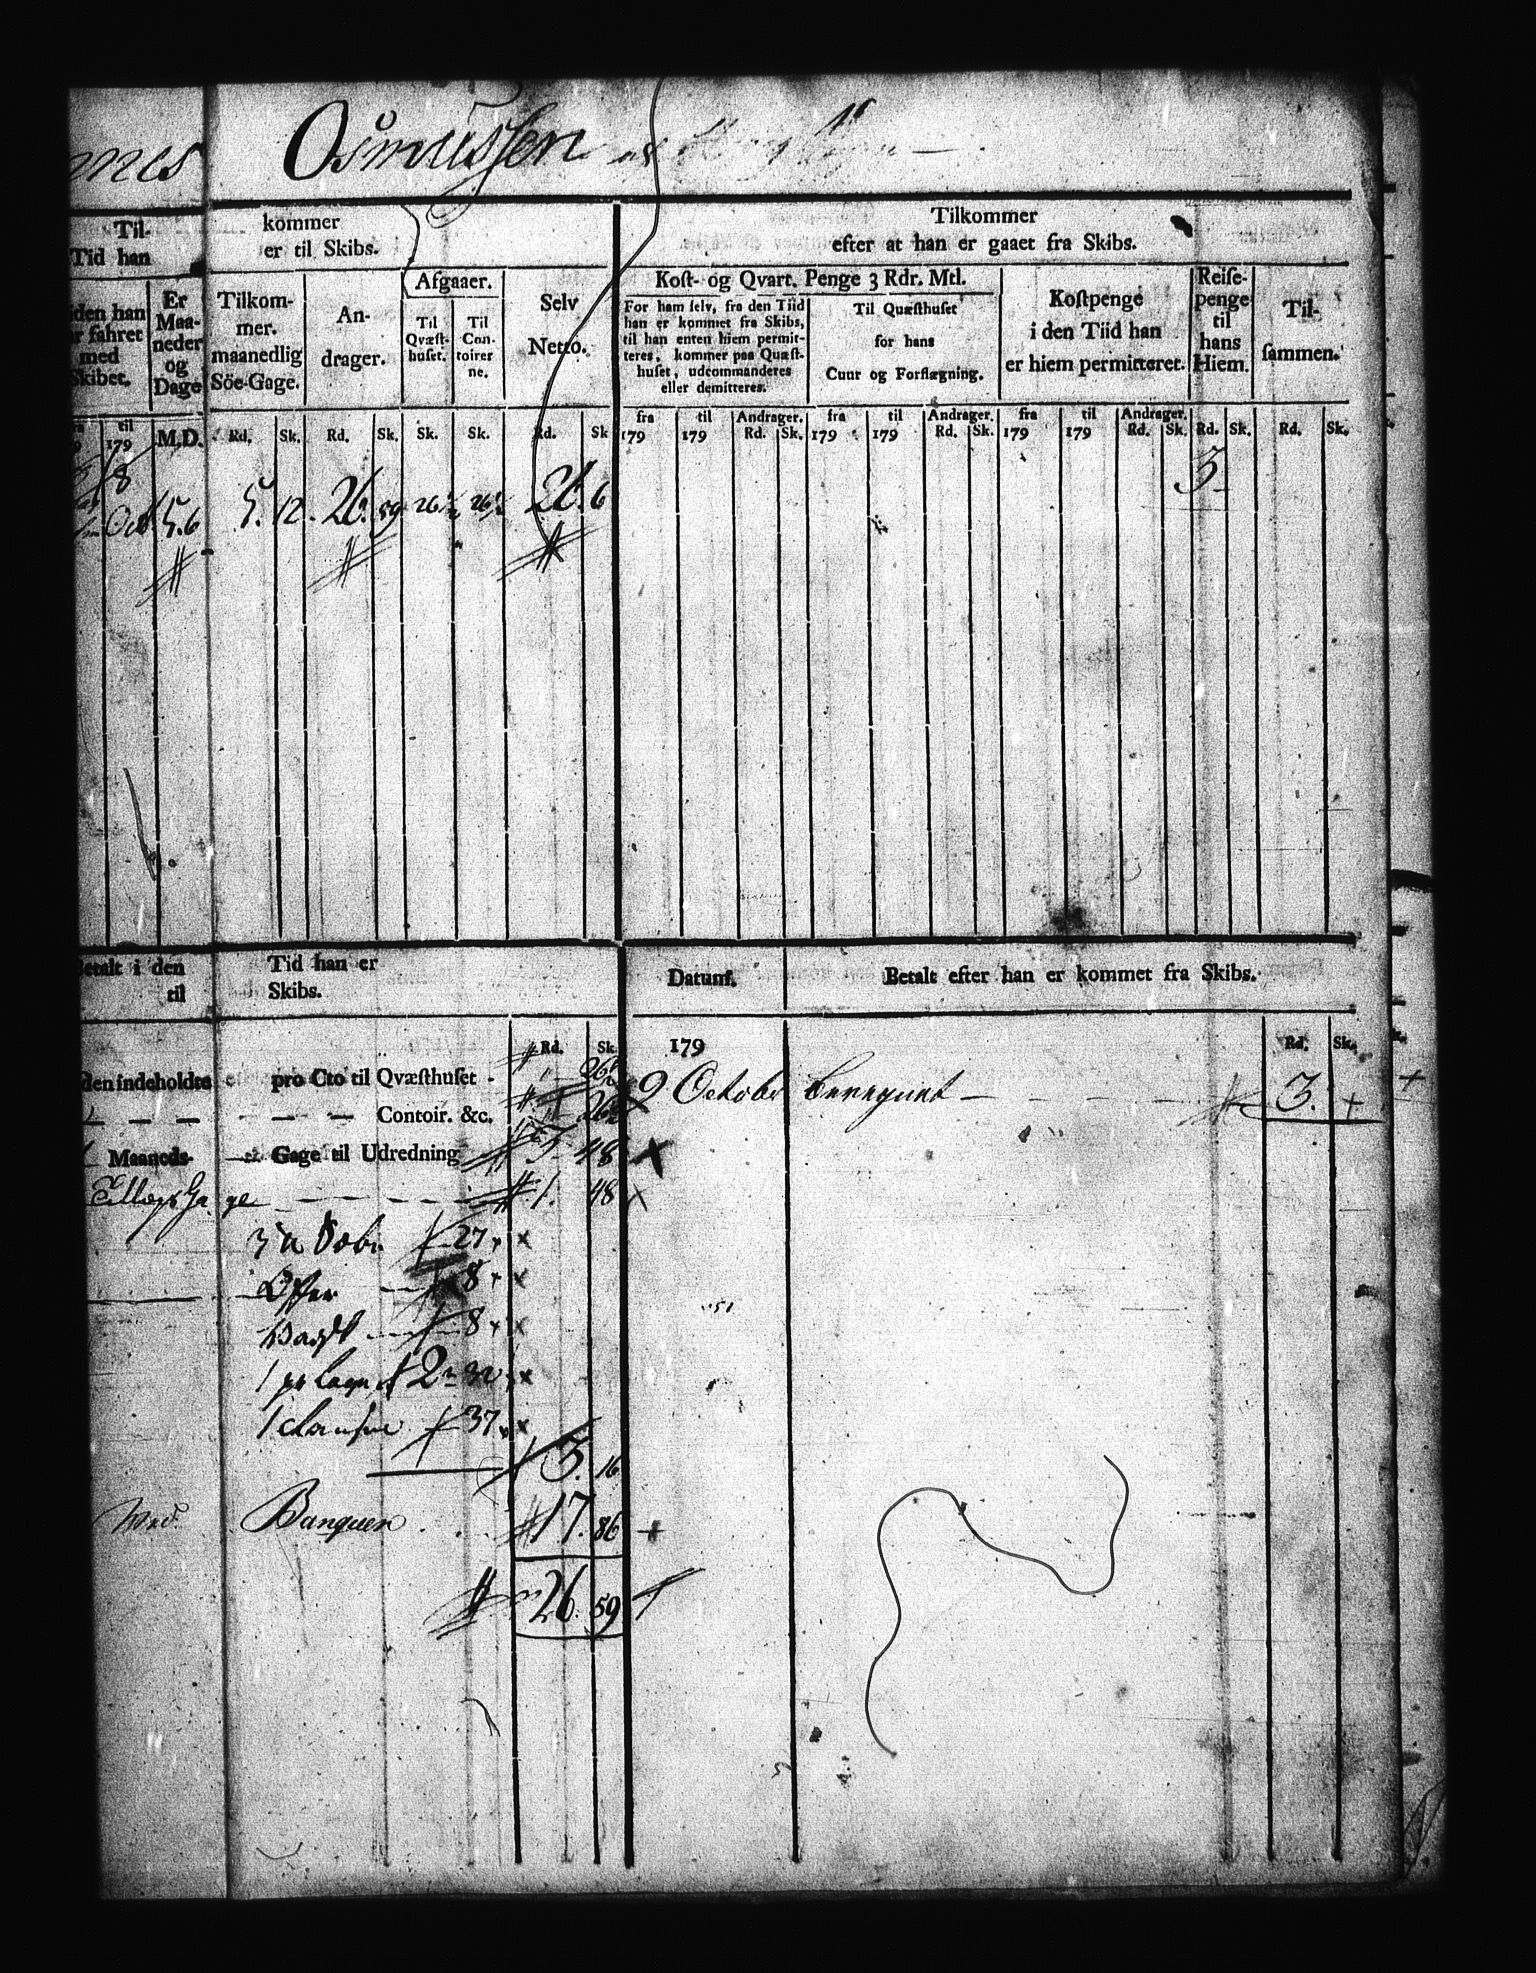 mes Osmussen
Til- kommer
Tid han er til Skibs.
Tilkommer
efter at han er gaaet fra Skibs.
iden han
r fahret
med
Skibet.
Er
Maa-
neder
og
Dage
Tilkom-
mer.
maanedlig
Söe-Gage.
An-
drager.
Afgaaer.
Til
Qvæst-
huset.
Til
Con-
toirer
ne.
Selv
Netto.
Kost- og Qvart. Penge 3 Rdr. Mtl.
For ham selv, fra den Tiid
han er kommet fra Skibs,
til han enten hiem permit-
teres, kommer paa Quæst-
huset, udcommanderes
eller demitteres.
Til Quæsthuset
for hans
Cuur og Forflægning.
Kostpenge
i den Tiid han
er hiem permitteret.
Reise-
penge
til
hans
Hiem.
Til-
sammen.
til fra til Andrager. fra til Andrager. fra til Andrager.
9 179 M.D. Rd. Sk. Rd. Sk. Sk. Sk. Rd. Sk 179 179 Rd. Sk. 179 179 Rd. Sk. 179 179 Rd. Sk. Rd. Sk. Rd. Sk.
8 3
Oct 5.6 5. 12. 26. 59 26½ 26½ 26. 6
Betalt i den Tid han er
til Skibs.
Datum. Betalt efter han er kommet fra Skibs.
Rd. Sk. 179 Rd. Sk.
den indeholdte pro Cto til Qvæsthuset - 26½
9 October beregnet 3.
Contoir. &c. 26½
Maaneds- Gage til Udredning 3 48
Tillægs Gage 1. 48
27
Offer 8
Vagt 8
1 2 32
1 37
3. 16
Banquen 17. 86
26. 59